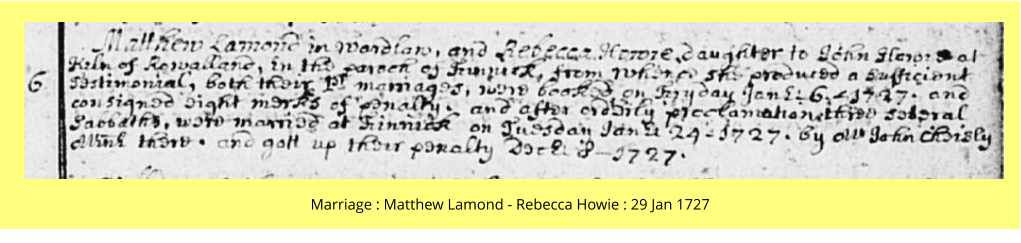 Matthew Lamond in Wardlaw, and Rebecca Howie, daughter to John Howie at
Kiln of Rowalland, in the paroch of Finnick, from whence she produced a sufficient
6. testimonial, both their pr marriages, were booked on Fryday Janr: 6. 1727. and
consigned eight merks of penalty. and after orderly proclamation three several
Sabbaths, were married at Finnick on Tuesday Janr 24 - 1727. by Mr John
Minr there. and gott up their penalty Decr: 8 - 1727.
Marriage : Matthew Lamond - Rebecca Howie : 29 Jan 1727